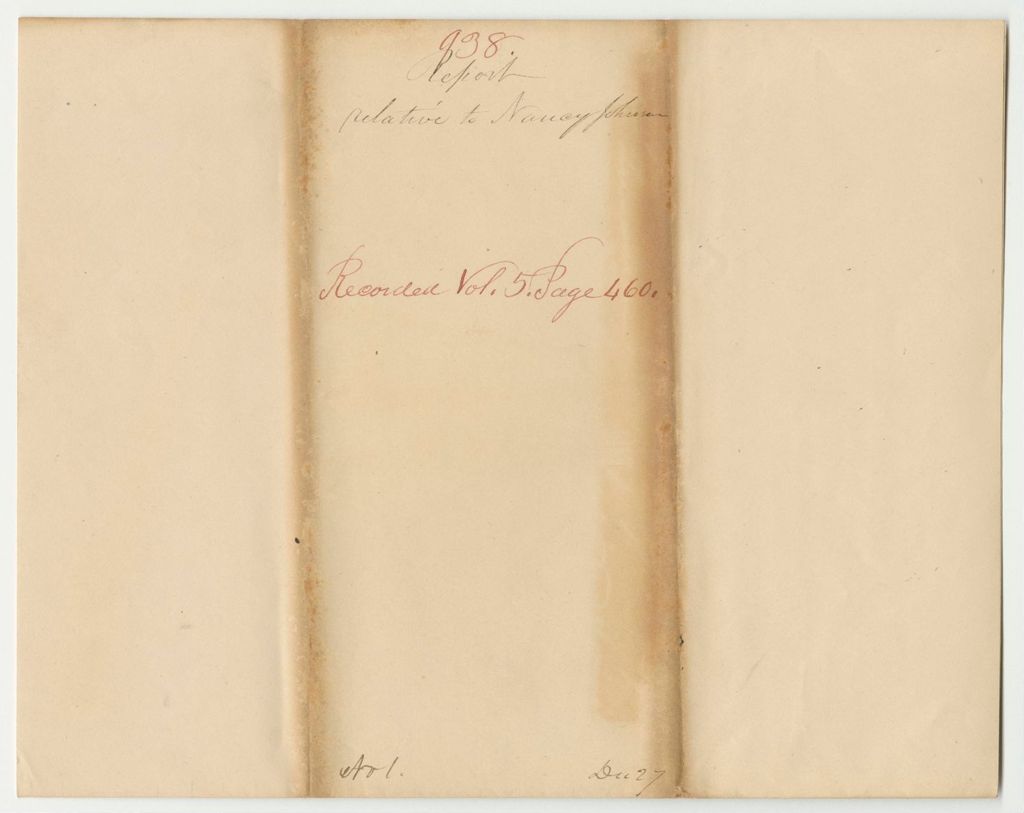 938.
Report
relative to Nancy Johnson
Recorded Vol. 5. Page 460.
No 1.
27